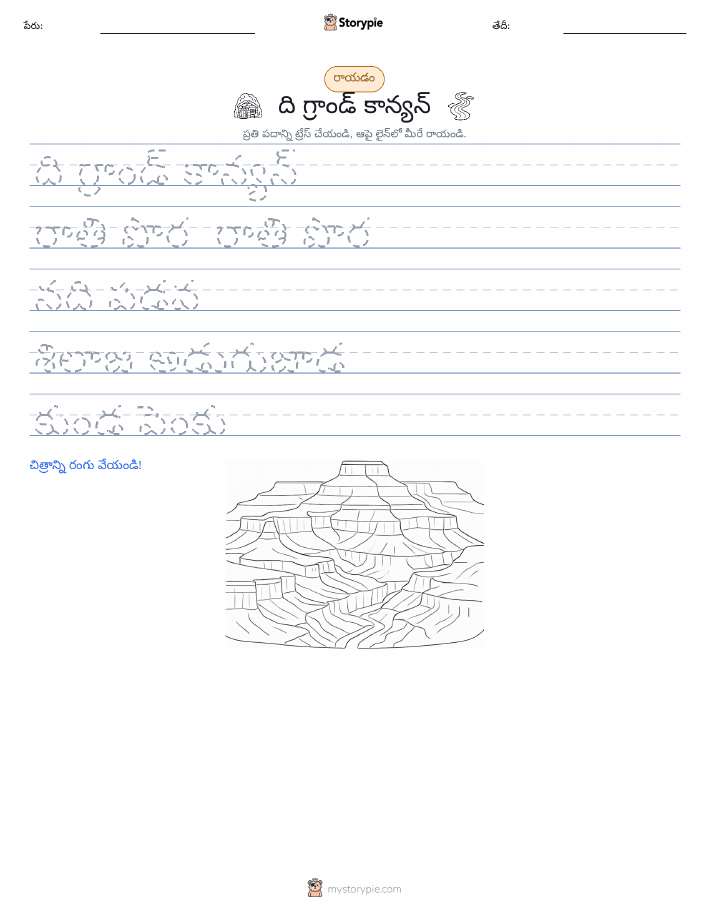 పేరు:
Storypie
తేదీ:
రాయడం
ది గ్రాండ్ కాన్యన్
ప్రతి పదాన్ని ట్రేస్ చేయండి, ఆపై లైన్‌లో మీరే రాయండి.
ది గ్రాండ్ కాన్యన్
రాతి పొర రాతి పొర
నది పడవ
శిలాజ జాడ
కుండ పెంకు
చిత్రాన్ని రంగు వేయండి!
mystorypie.com